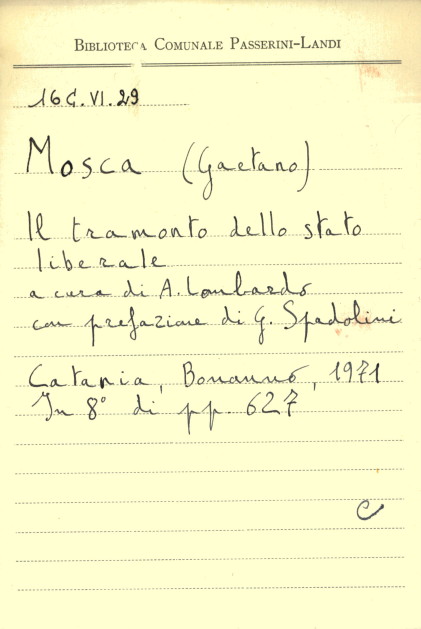 BIBLIOTECA COMUNALE PASSERINI-LANDI
16 C. VI. 29
Mosca (Gaetano)
Il tramonto dello stato
liberale
a cura di A. Lombardo
con prefazione di G. Spadolini
Catania, Bonanno, 1971
In 8° di pp. 627
C